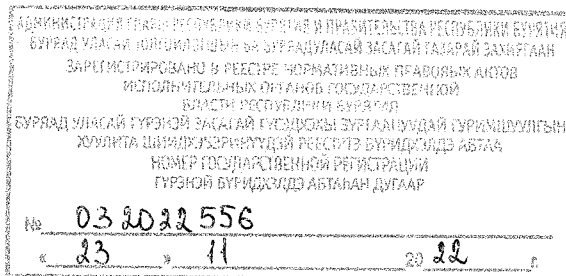 АДМИНИСТРАЦИЯ ГЛАВЫ РЕСПУБЛИКИ БУРЯТИЯ И ПРАВИТЕЛЬСТВА РЕСПУБЛИКИ БУРЯТИЯ
БУРЯАД УЛАСАЙ БА БУРЯАД УЛАСАЙ ЗАСАГАЙ ГАЗАРАЙ ЗАХИРГААН
ЗАРЕГИСТРИРОВАНО В РЕЕСТРЕ НОРМАТИВНЫХ ПРАВОВЫХ АКТОВ
ИСПОЛНИТЕЛЬНЫХ ОРГАНОВ ГОСУДАРСТВЕННОЙ
ВЛАСТИ РЕСПУБЛИКИ БУРЯТИЯ
БУРЯАД УЛАСАЙ ГҮРЭНЭЙ ЗАСАГАЙ ГҮЙСЭДХЭХЫ ЗУРГААНУУДАЙ ГУРИМШУУЛГЫН
ХУУЛИТА РЕЕСТРТЭ БҮРИДХЭЛДЭ АБТАА
НОМЕР ГОСУДАРСТВЕННОЙ РЕГИСТРАЦИИ
ГҮРЭНЭЙ БҮРИДХЭЛДЭ АБТАҺАН ДУГААР
№ 032022556
« 23 » 11 20 22 г.